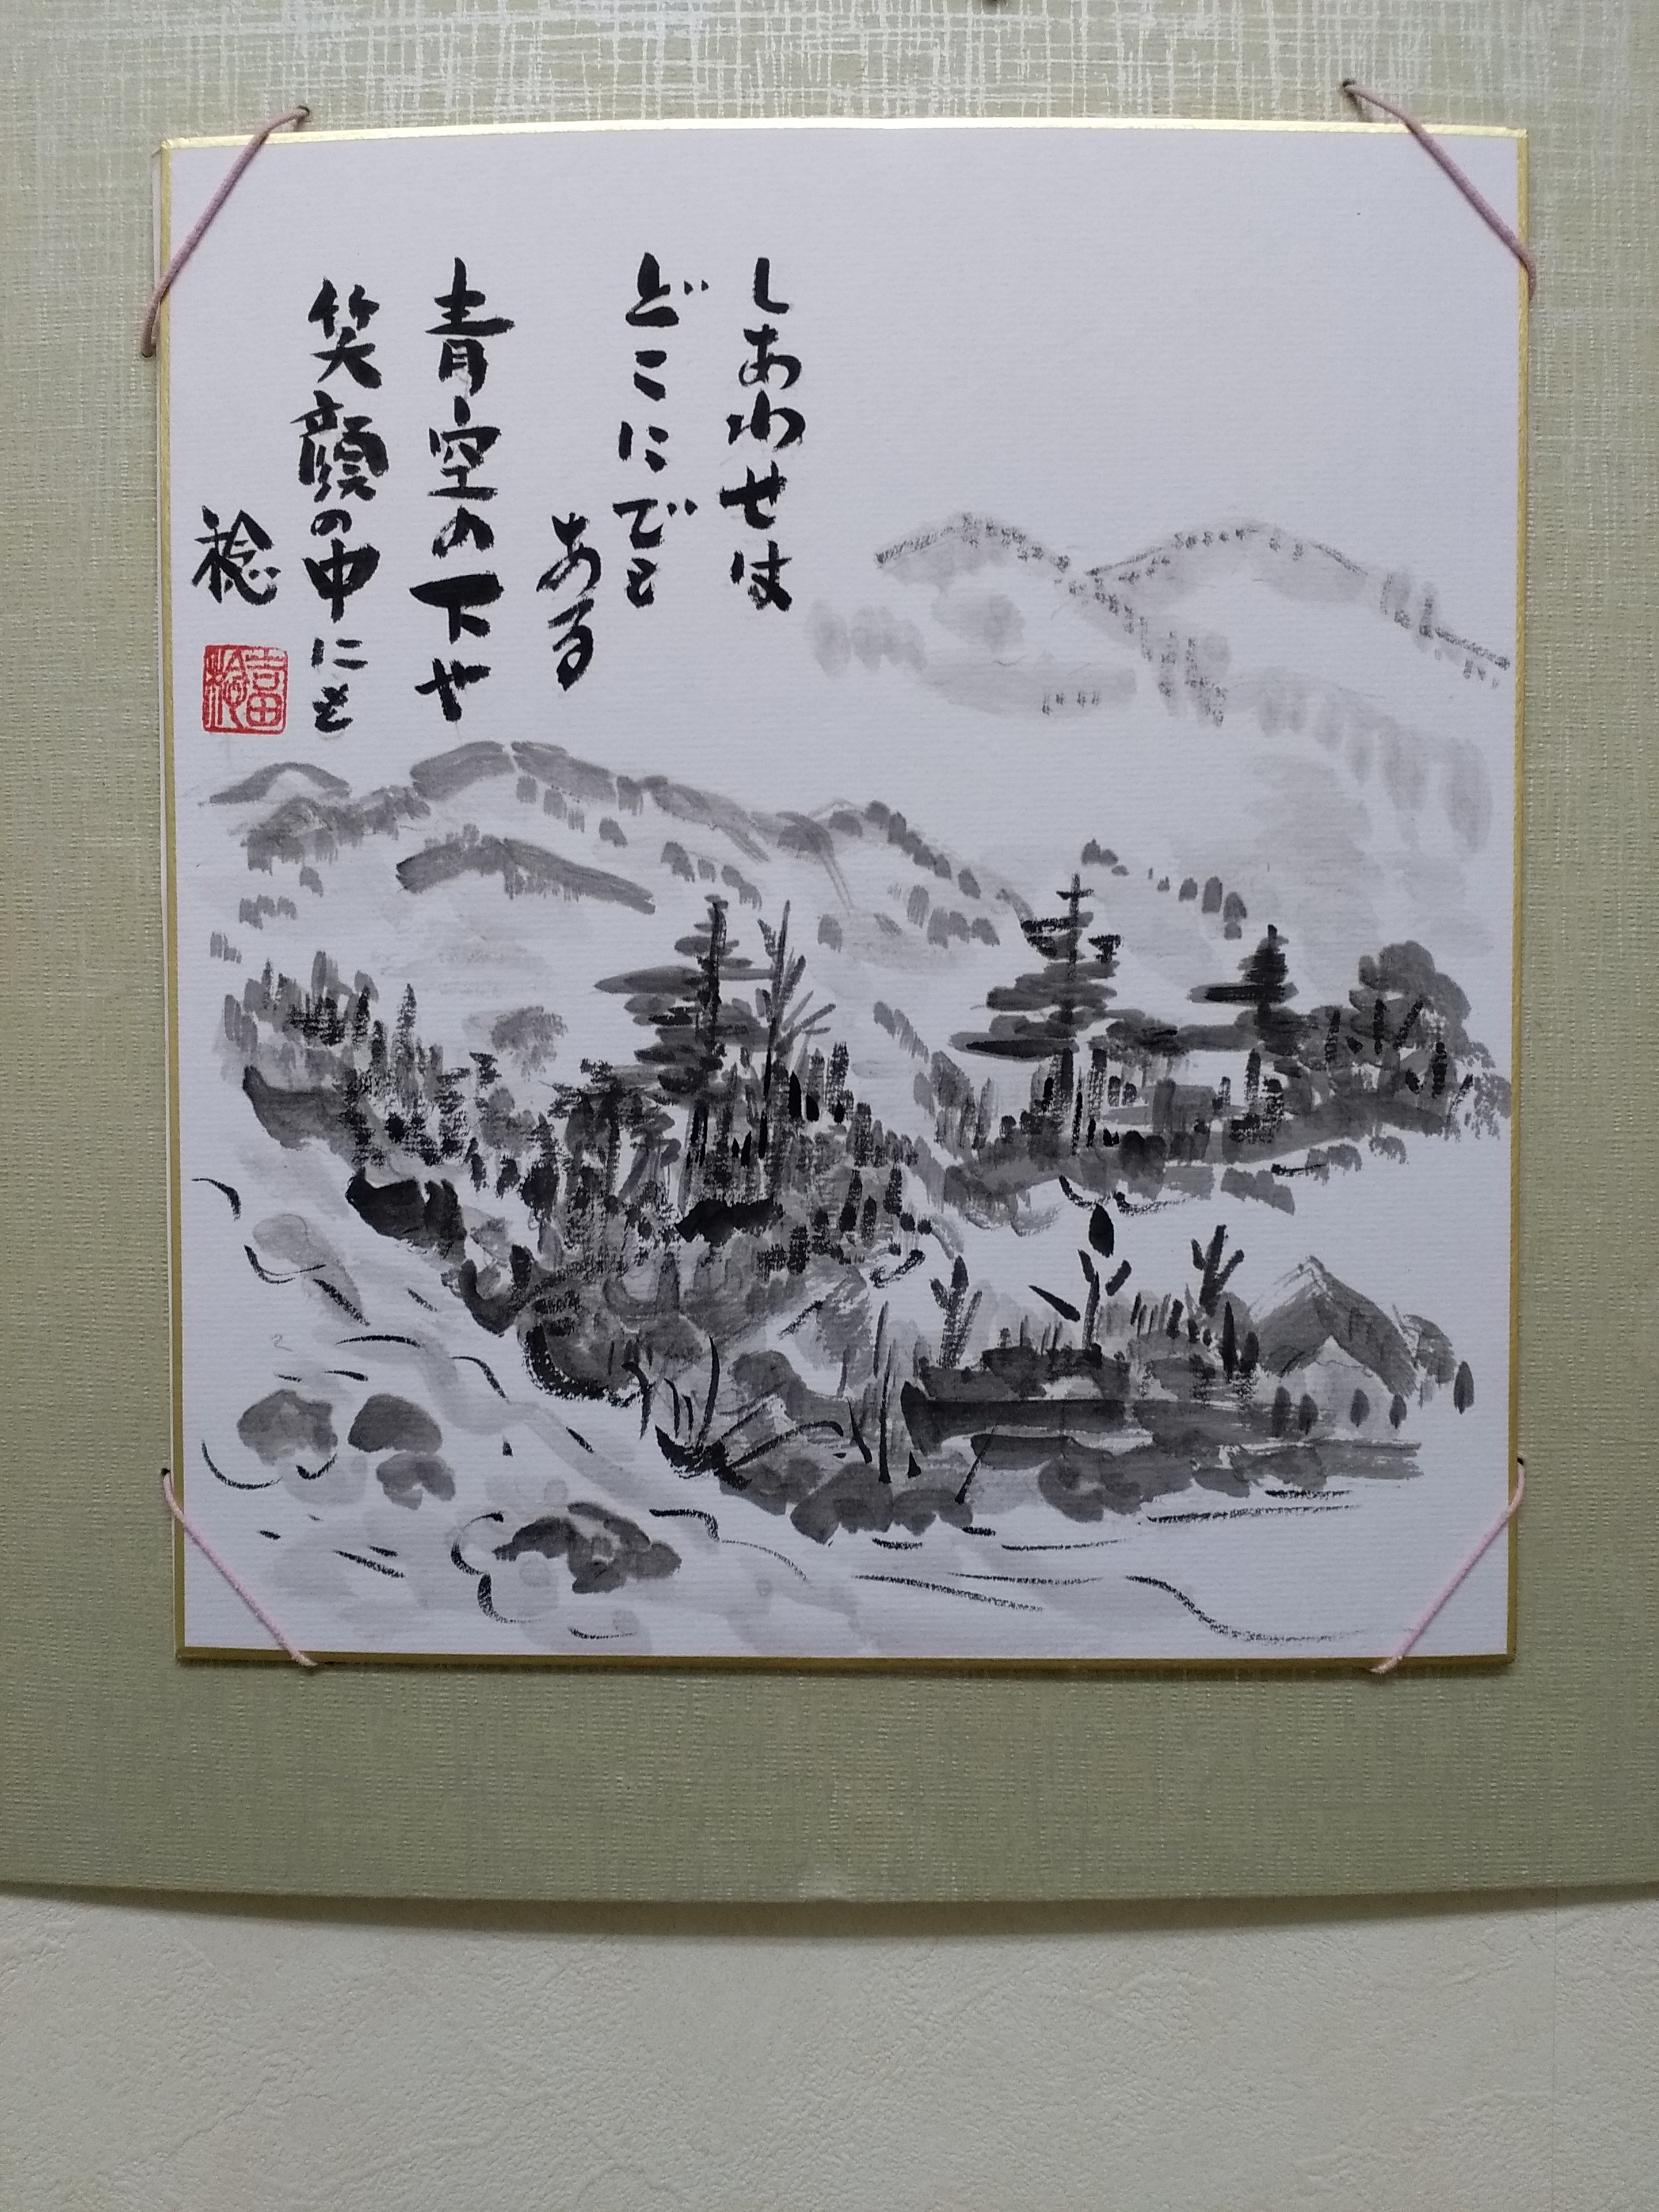 しあわせは
どこにでも
ある
青空の下や
笑顔の中にも
稔